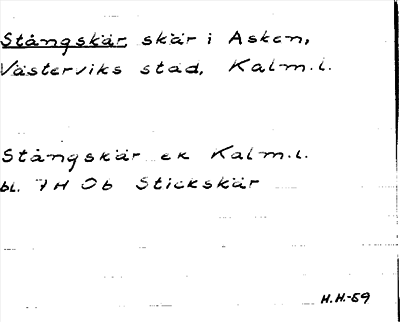 Stångskär, skär i Asken,
Västerviks stad, Kalm.l.
Stångskär ek Kalm.l.
bl. 7H 0b Stickskär
H.H.-59